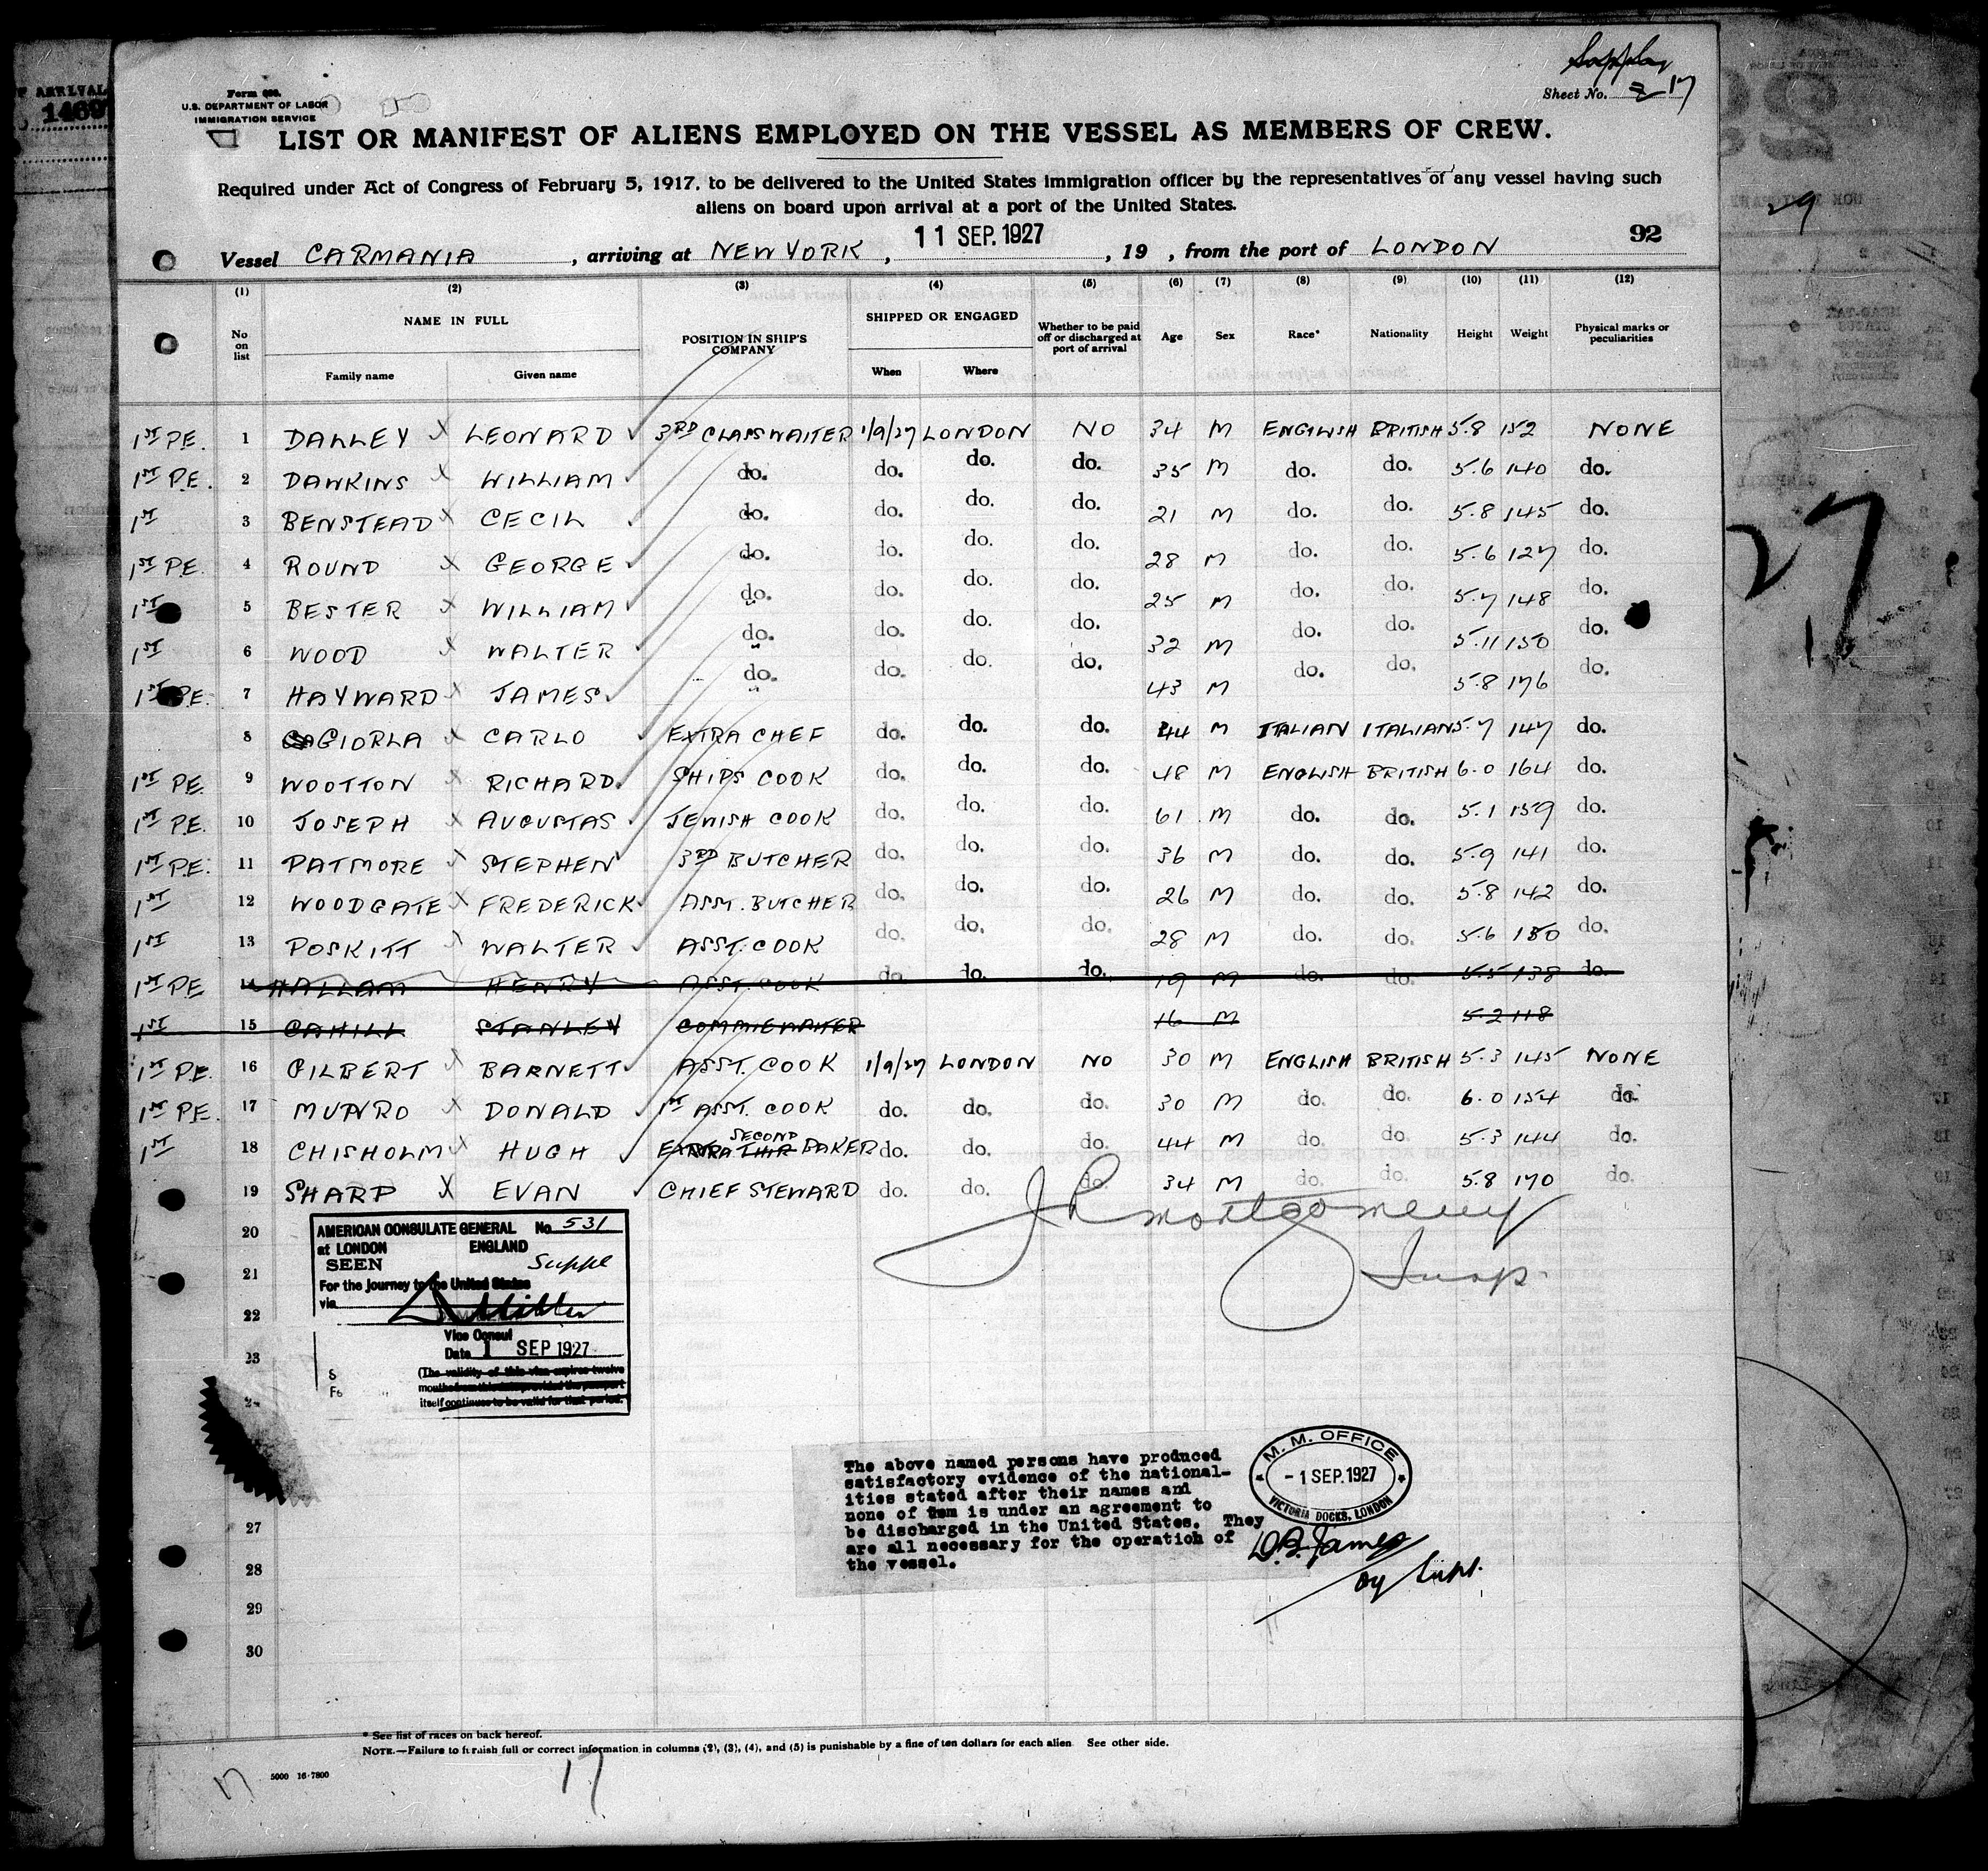 Form 680.
U.S. DEPARTMENT OF LABOR
IMMIGRATION SERVICE
Sheet No. 2 17
LIST OR MANIFEST OF ALIENS EMPLOYED ON THE VESSEL AS MEMBERS OF CREW.
Required under Act of Congress of February 5, 1917, to be delivered to the United States immigration officer by the representatives of any vessel having such
aliens on board upon arrival at a port of the United States.
92
Vessel CARMANIA, arriving at NEW YORK, 11 SEP. 1927, 19 , from the port of LONDON
(1) (2) (3) (4) (5) (6) (7) (8) (9) (10) (11) (12)
No on list NAME IN FULL Family name Given name POSITION IN SHIP'S COMPANY SHIPPED OR ENGAGED When Where Whether to be paid off or discharged at port of arrival Age Sex Race* Nationality Height Weight Physical marks or peculiarities
1ST P.E. 1 DALLEY X LEONARD 3RD CLASS WAITER 1/9/27 LONDON NO 34 M ENGLISH BRITISH 5.8 152 NONE
1ST P.E. 2 DAWKINS X WILLIAM do. do. do. do. 35 M do. do. 5.6 140 do.
1ST 3 BENSTEAD X CECIL do. do. do. do. 21 M do. do. 5.8 145 do.
1ST P.E. 4 ROUND X GEORGE do. do. do. do. 28 M do. do. 5.6 127 do.
1ST 5 BESTER X WILLIAM do. do. do. do. 25 M do. do. 5.7 148 do.
1ST 6 WOOD X WALTER do. do. do. do. 32 M do. do. 5.11 150 do.
1ST P.E. 7 HAYWARD X JAMES do. do. do. do. 43 M do. do. 5.8 176 do.
8 GIORLA X CARLO EXTRA CHEF do. do. do. 44 M ITALIAN ITALIAN 5.7 147 do.
1ST P.E. 9 WOOTTON X RICHARD SHIPS COOK do. do. do. 48 M ENGLISH BRITISH 6.0 164 do.
1ST P.E. 10 JOSEPH X AUGUSTAS JEWISH COOK do. do. do. 61 M do. do. 5.1 159 do.
1ST P.E. 11 PATMORE X STEPHEN 3RD BUTCHER do. do. do. 36 M do. do. 5.9 141 do.
1ST 12 WOODGATE X FREDERICK ASST. BUTCHER do. do. do. 26 M do. do. 5.8 142 do.
1ST 13 POSKITT X WALTER ASST. COOK do. do. do. 28 M do. do. 5.6 150 do.
1ST P.E 14 HALLAM HENRY ASST. COOK do. do. do. 19 M do. do. 5.5 138 do.
1ST 15 CAHILL STANLEY COMMIE WAITER 16 M 5.2 118
1ST P.E. 16 GILBERT X BARNETT ASST. COOK 1/9/27 LONDON NO 30 M ENGLISH BRITISH 5.3 145 NONE
1ST P.E. 17 MUNRO X DONALD 1ST ASST. COOK do. do. do. 30 M do. do. 6.0 154 do.
1ST 18 CHISHOLM X HUGH EXTRA SECOND BAKER do. do. do. 44 M do. do. 5.3 144 do.
19 SHARP X EVAN CHIEF STEWARD do. do. do. 34 M do. do. 5.8 170 do.
Montgomery
20
21
22
23
27
28
29
30
AMERICAN CONSULATE GENERAL No. 531
at LONDON ENGLAND
SEEN Suppl
For the journey to the United States
via
Vice Consul
Date 1 SEP 1927
(The validity of this visa expires twelve
months from this date provided the passport
itself continues to be valid for that period.
The above named persons have produced
satisfactory evidence of the national-
ities stated after their names and
none of them is under an agreement to
be discharged in the United States. They
are all necessary for the operation of
the vessel.
M. M. OFFICE
- 1 SEP. 1927
VICTORIA DOCKS, LONDON
D.B. James
* See list of races on back hereof.
NOTE.—Failure to furnish full or correct information in columns (2), (3), (4), and (5) is punishable by a fine of ten dollars for each alien. See other side.
5000 16-7800
17
17
ARRIVAL
1469
29
27
17